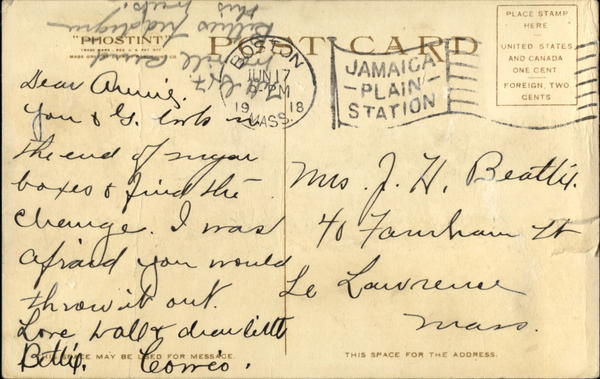 "PHOSTINT"
POST CARD
PLACE STAMP
HERE
UNITED STATES
AND CANADA
ONE CENT
FOREIGN, TWO
CENTS
BOSTON
JUN 17
PM
1918
MASS.
JAMAICA
PLAIN
STATION
will send
this
Dear Annie.
You & G. look in
the end of sugar
boxes & find the
change. I was
afraid you would
throw it out.
Love to all &
Bettie.
Mrs. J. H. Beattie.
40 Farnham St
So Lawrence
Mass.
THIS SPACE MAY BE USED FOR MESSAGE.
THIS SPACE FOR THE ADDRESS.